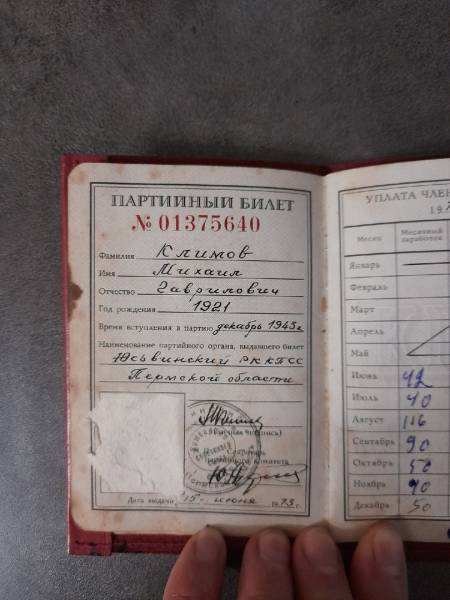 ПАРТИЙНЫЙ БИЛЕТ
№ 01375640
Фамилия Климов
Имя Михаил
Отчество Гаврилович
Год рождения 1921
Время вступления в партию декабрь 1943г
Наименование партийного органа, выдавшего билет
Юсьвинский РК КПСС
Пермской области
(Личная подпись)
Секретарь
комитета
Дата выдачи „15" июня 1973г.
УПЛАТА ЧЛЕН
197
Месяц
Месячный заработок
Январь
Февраль
Март
Апрель
Май
Июнь 42
Июль 40
Август 116
Сентябрь 90
Октябрь 50
Ноябрь 90
Декабрь 50